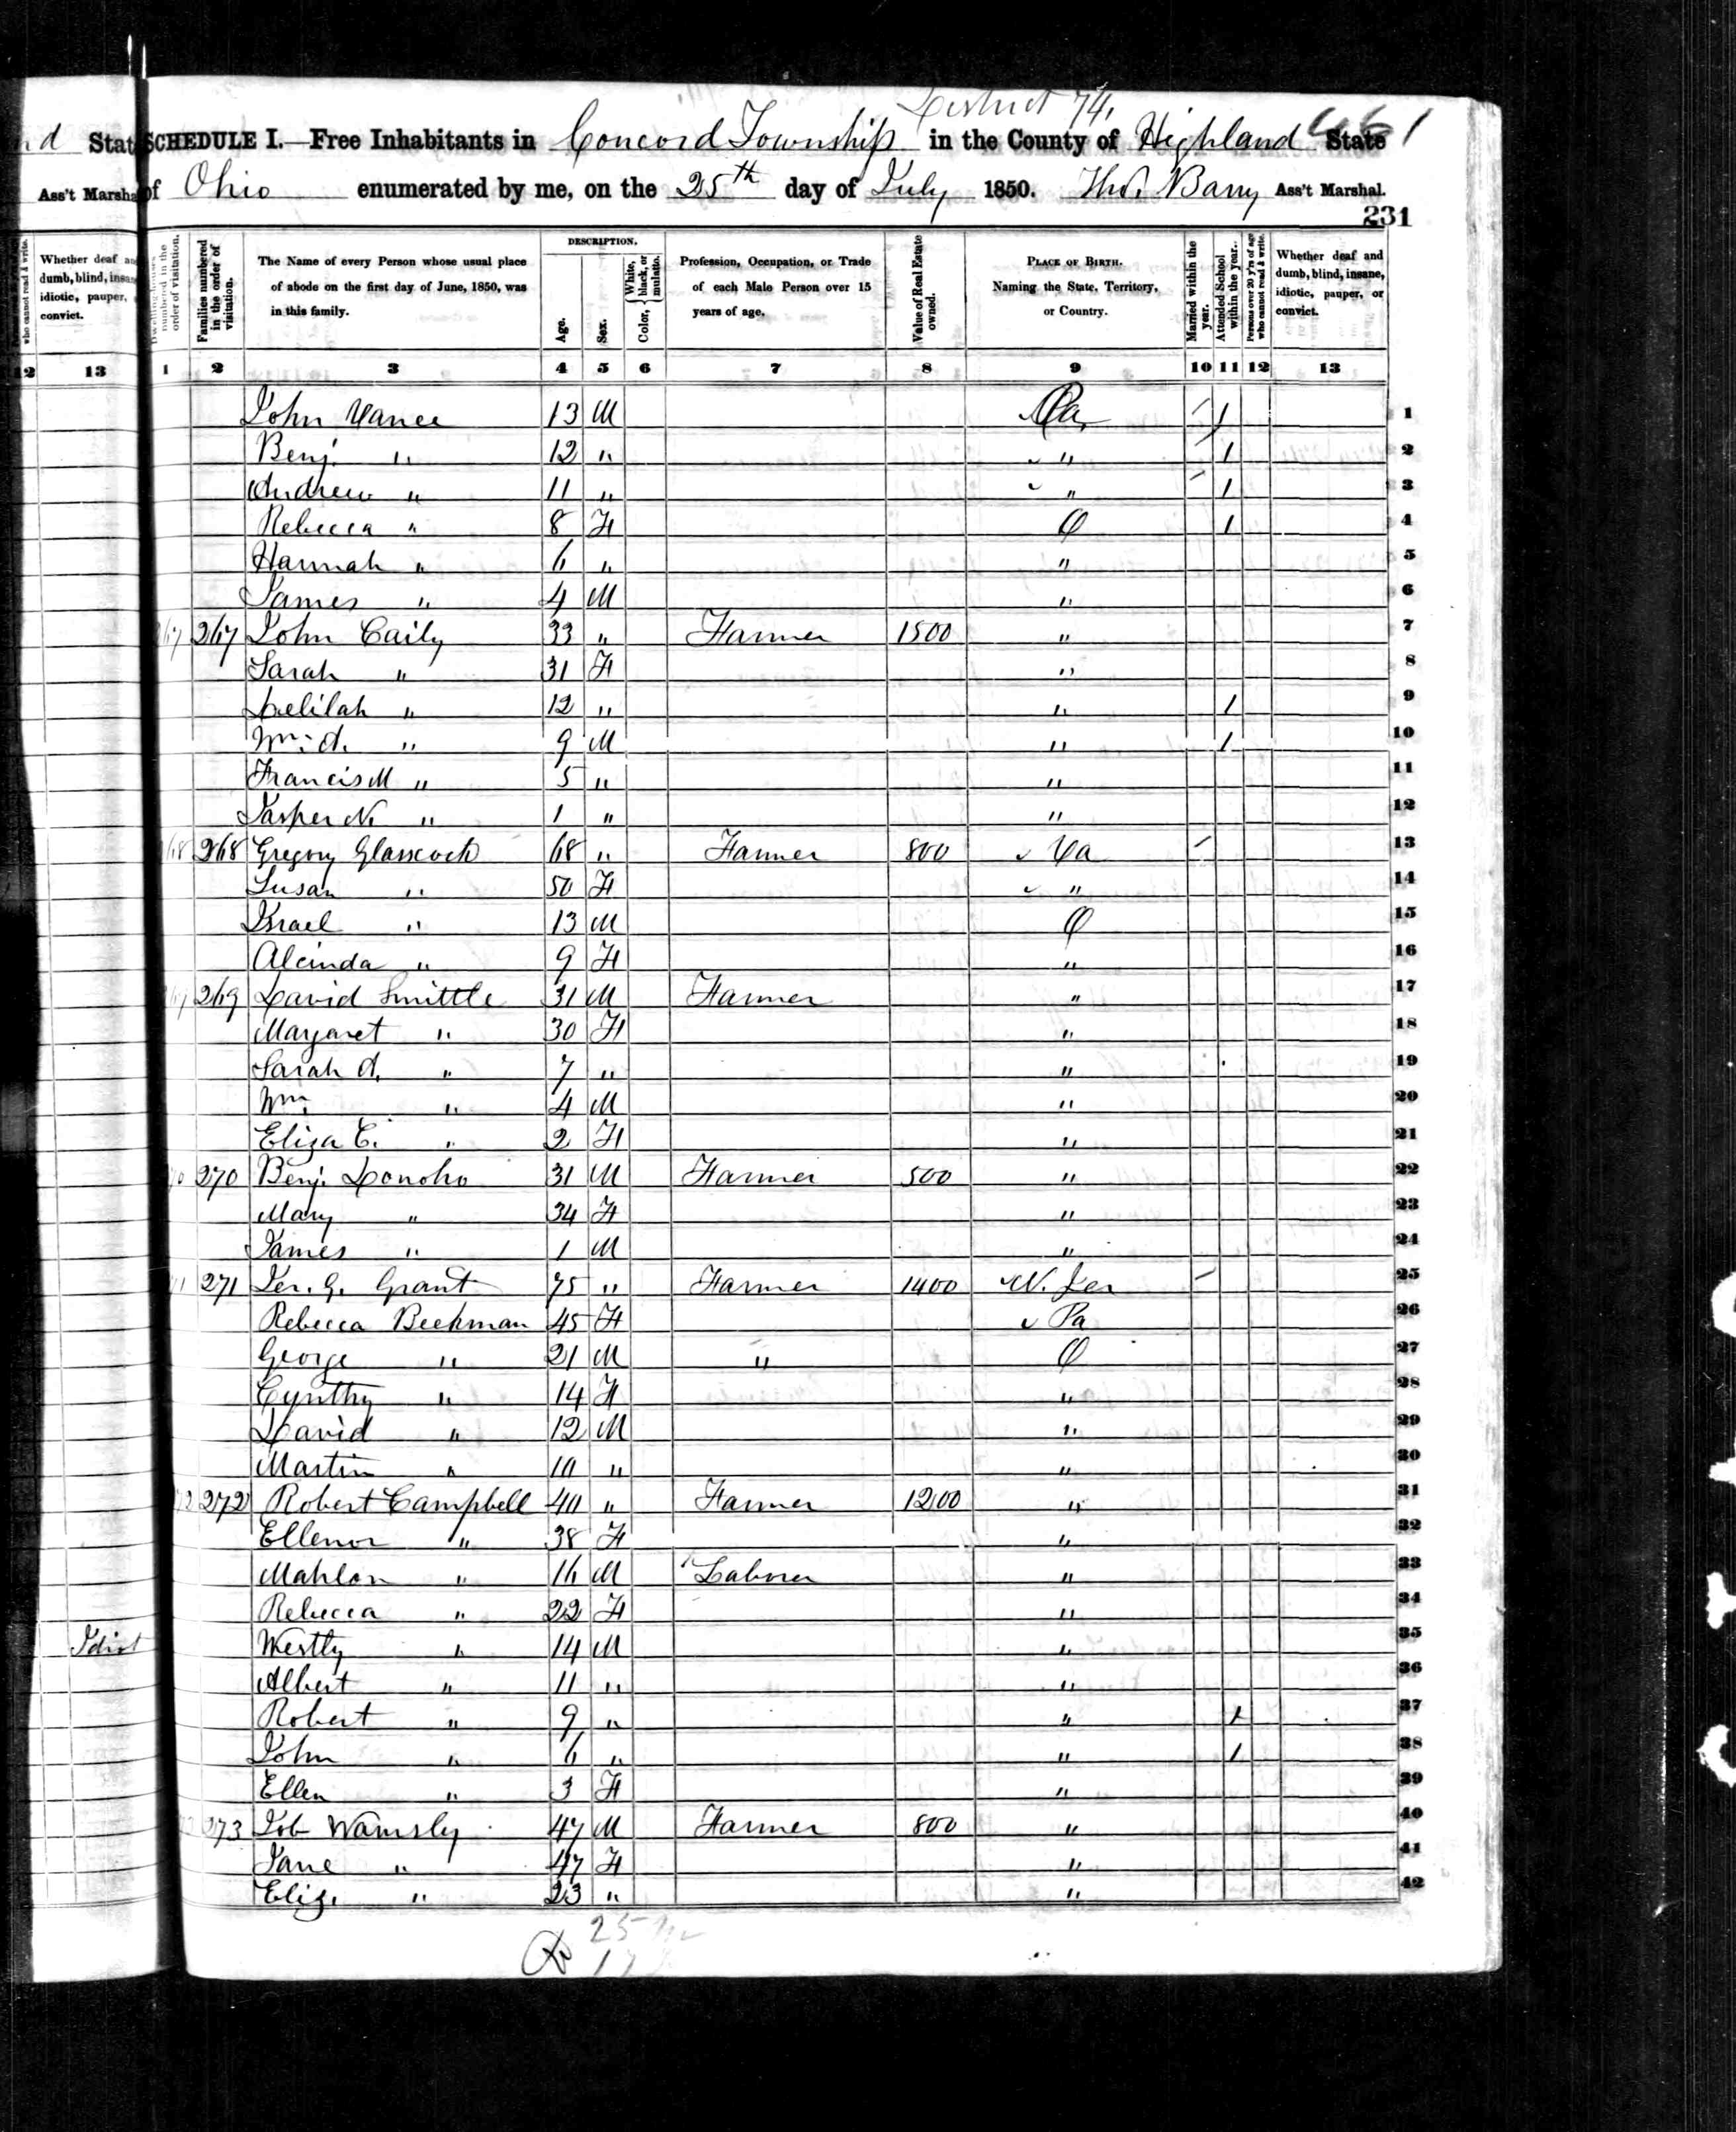 District 74,
nd State
SCHEDULE I.—Free Inhabitants in Concord Township in the County of Highland State 461
Ass't Marshal
of Ohio enumerated by me, on the 25th day of July 1850. Tho's Barry Ass't Marshal.
231
who cannot read & write.
Whether deaf and dumb, blind, insane, idiotic, pauper, convict.
numbered in the order of visitation.
Families numbered in the order of visitation.
The Name of every Person whose usual place of abode on the first day of June, 1850, was in this family.
DESCRIPTION.
Age.
Sex.
Color, {White, black, or mulatto.
Profession, Occupation, or Trade of each Male Person over 15 years of age.
Value of Real Estate owned.
PLACE OF BIRTH. Naming the State, Territory, or Country.
Married within the year.
Attended School within the year.
Persons over 20 y'rs of age who cannot read & write.
Whether deaf and dumb, blind, insane, idiotic, pauper, or convict.
12 13 1 2 3 4 5 6 7 8 9 10 11 12 13
John Vance 13 M Pa, / 1 1
Benj. " 12 " " 1 2
Andrew " 11 " " 1 3
Rebecca " 8 F O 1 4
Hannah " 6 " " 5
James " 4 M " 6
267 John Caily 33 " Farmer 1500 " 7
Sarah " 31 F " 8
Delilah " 12 " " 1 9
Wm. A. " 9 M " 1 10
Francis M " 5 " " 11
Jasper N. " 1 " " 12
268 Gregory Glasscock 68 " Farmer 800 Va 13
Susan " 50 F " 14
Israel " 13 M O 15
Alcinda " 9 F " 16
269 David Smittle 31 M Farmer " 17
Margaret " 30 F " 18
Sarah A. " 7 " " 19
Wm. " 4 M " 20
Eliza C. " 2 F " 21
270 Benj. Donoho 31 M Farmer 500 " 22
Mary " 34 F " 23
James " 1 M " 24
271 Jer. G. Grant 75 " Farmer 1400 N. Jer 25
Rebecca Beekman 45 F Pa 26
George " 21 M " O 27
Cynthy " 14 F " 28
David " 12 M " 29
Martin " 10 " " 30
272 Robert Campbell 40 " Farmer 1200 " 31
Ellenor " 38 F " 32
Mahlon " 16 M Laborer " 33
Rebecca " 22 F " 34
Idiot Westly " 14 M " 35
Albert " 11 " " 36
Robert " 9 " " 1 37
John " 6 " " 1 38
Ellen " 3 F " 39
273 Job Wamsly 47 M Farmer 800 " 40
Jane " 47 F " 41
Eliz. " 23 " " 42
25
17